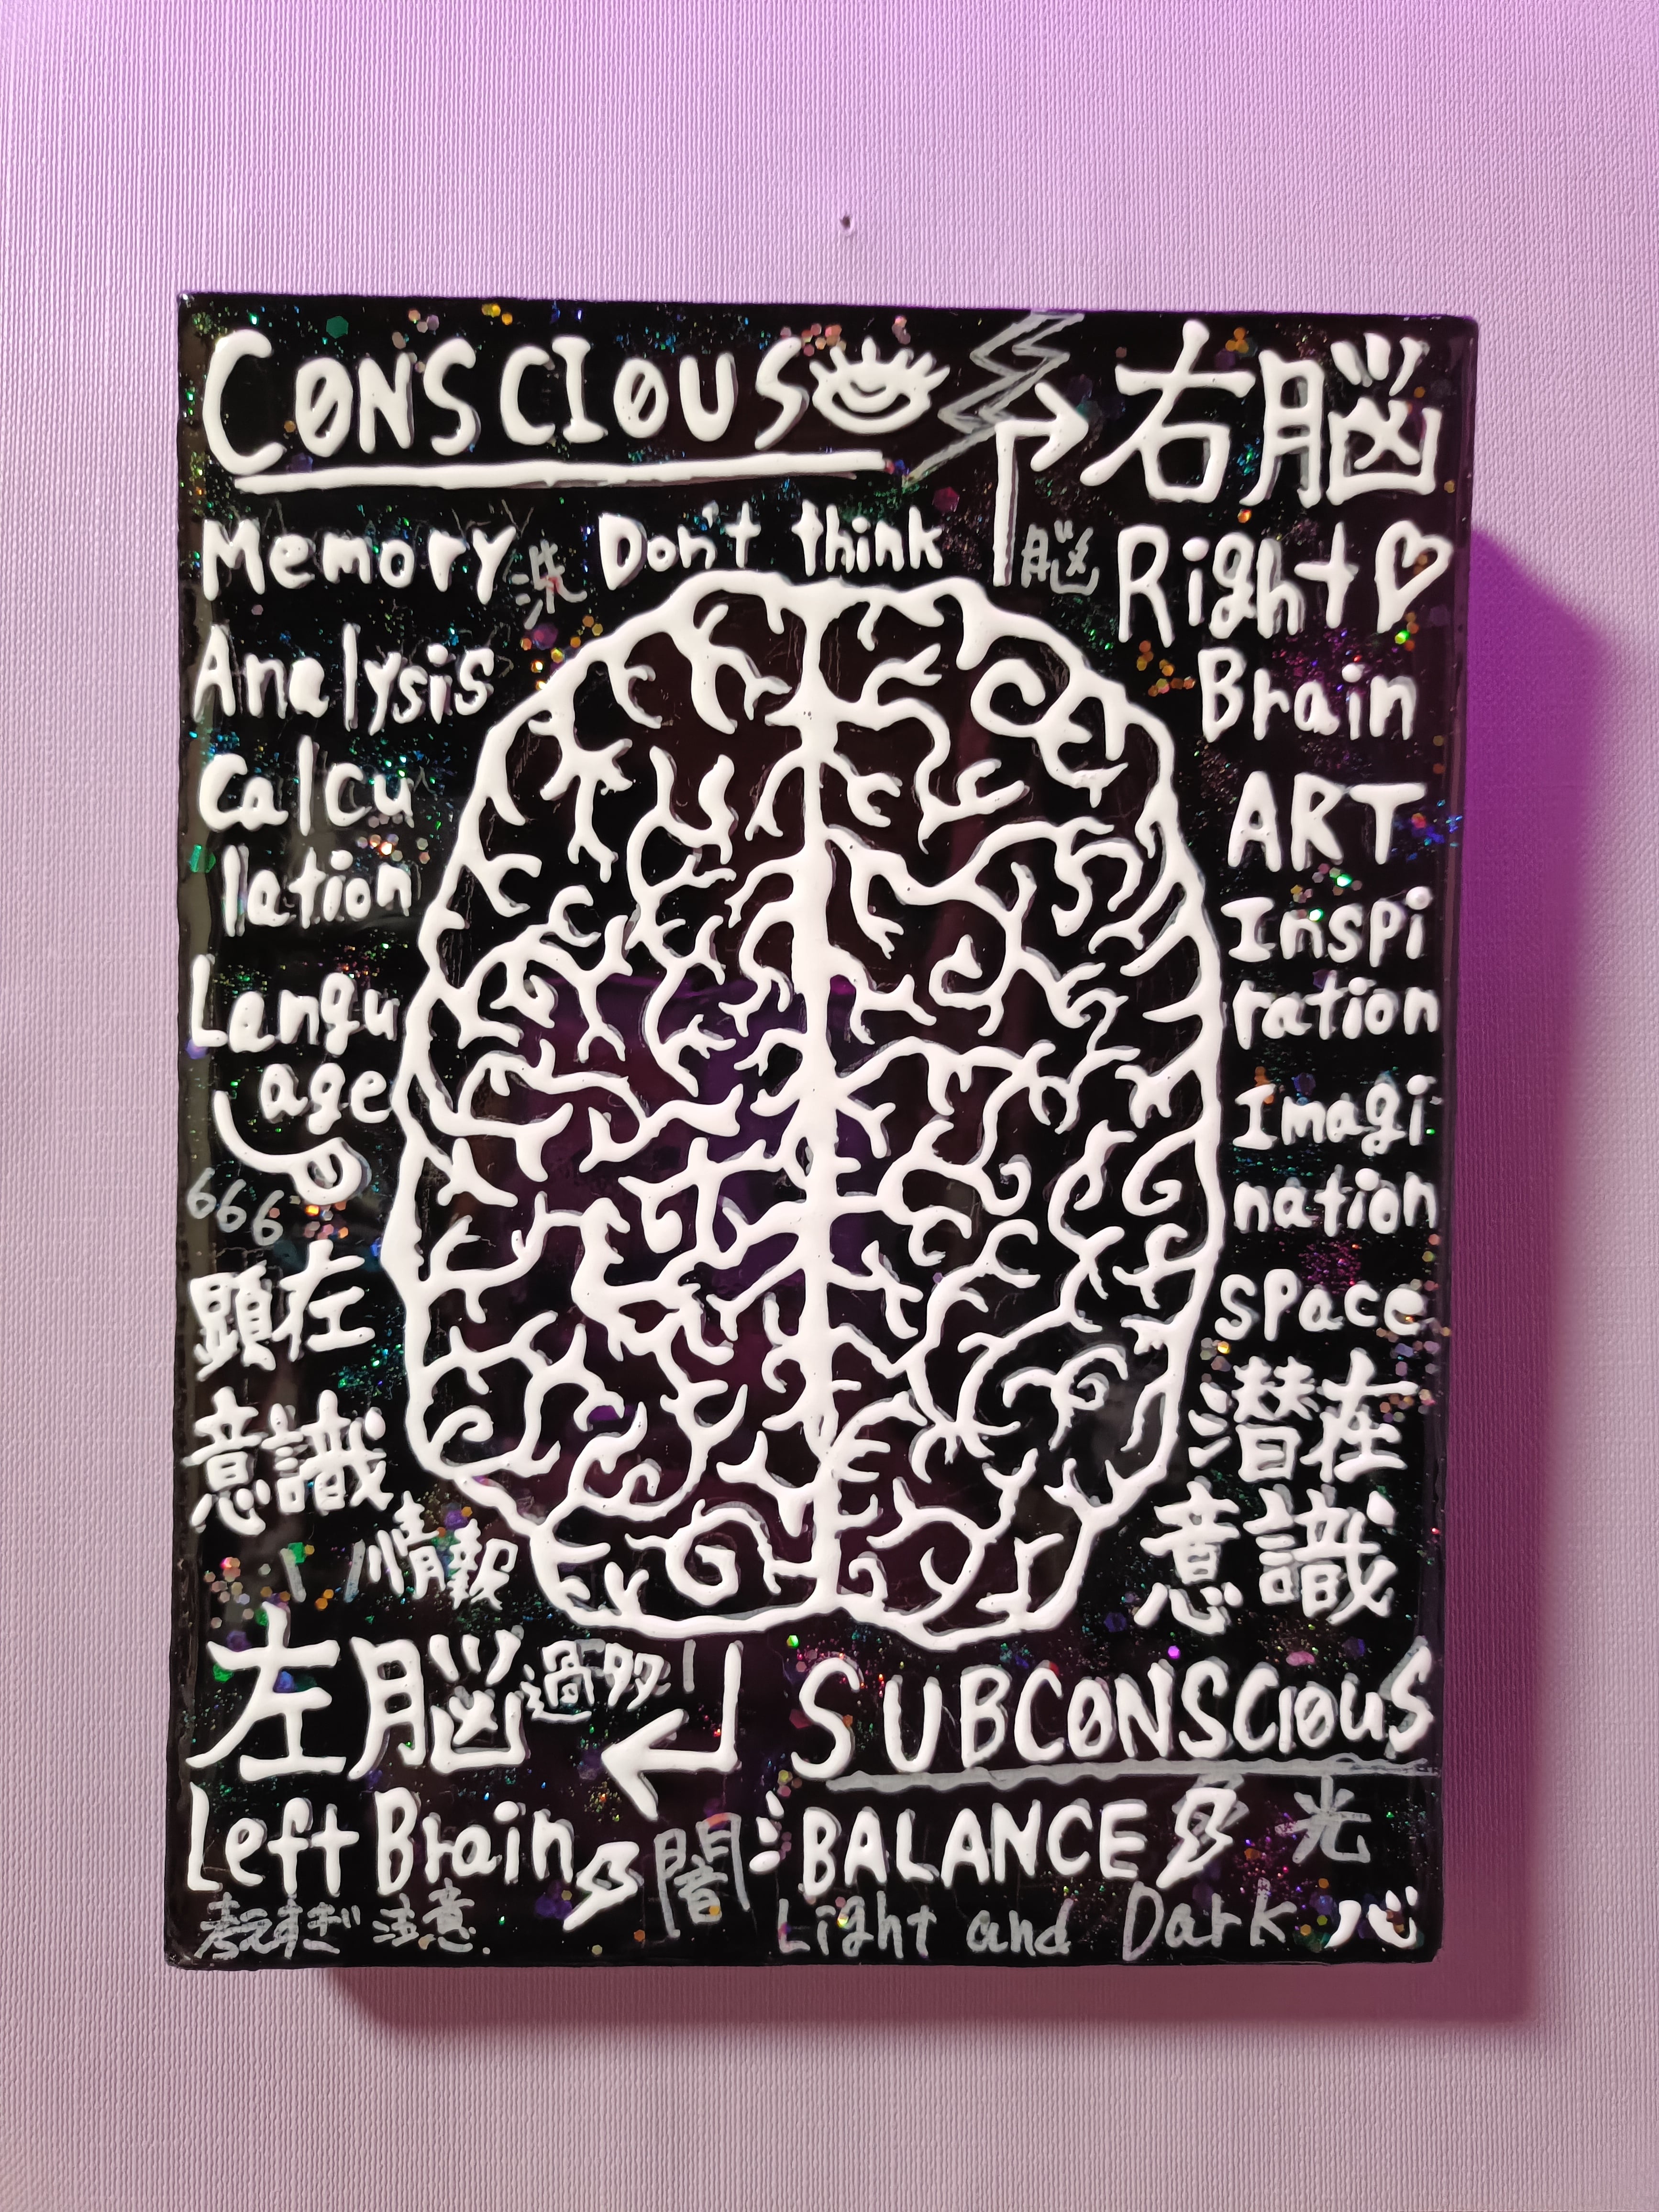 CONSCIOUS
右脳
Memory 洗 Don't think 脳 Right
Analysis
Brain
Calcu
lation
ART
Inspi
ration
Langu
age
Imagi
nation
666
Space
顕在
意識
潜在
意識
情報
左脳 過多
SUBCONSCIOUS
Left Brain 闇 BALANCE 光
考えすぎ 注意.
Light and Dark 心